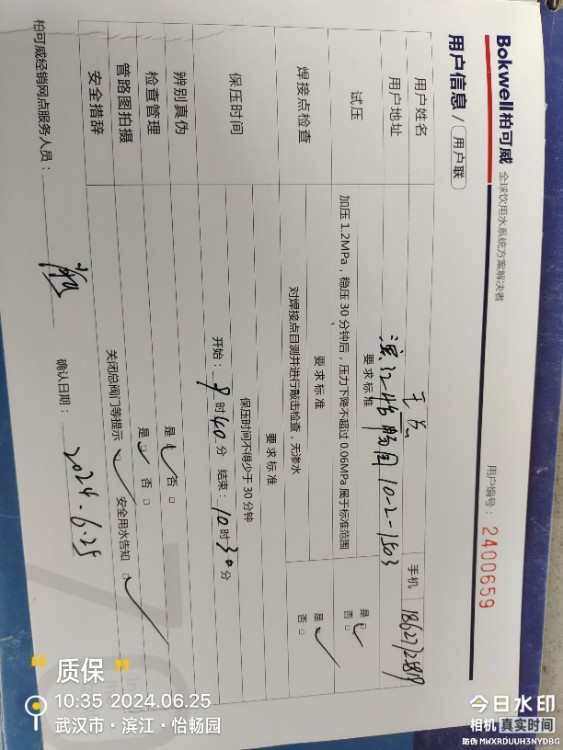 Bokwell柏可威 全球饮用水系统方案解决者
用户信息/用户联
用户编号：2400659
用户姓名 王 手机
用户地址 滨江怡畅园10-2-1503
试压 要求标准
加压1.2MPa，稳压30分钟后，压力下降不超过0.06MPa属于标准范围 是 否
焊接点检查 要求标准
对焊接点目测并进行敲击检查，无渗水 是 否
保压时间 要求标准
保压时间不得少于30分钟
开始：9时40分 结束：10时30分
辨别真伪 是 否
检查管理 是 否
管路图拍摄
安全措辞 关闭总阀门等提示 安全用水告知
柏可威经销网点服务人员： 确认日期：2024.6.25
质保
10:35 2024.06.25
武汉市·滨江·怡畅园
今日水印
相机 真实时间
防伪 MWXRDUUH3NYDBG